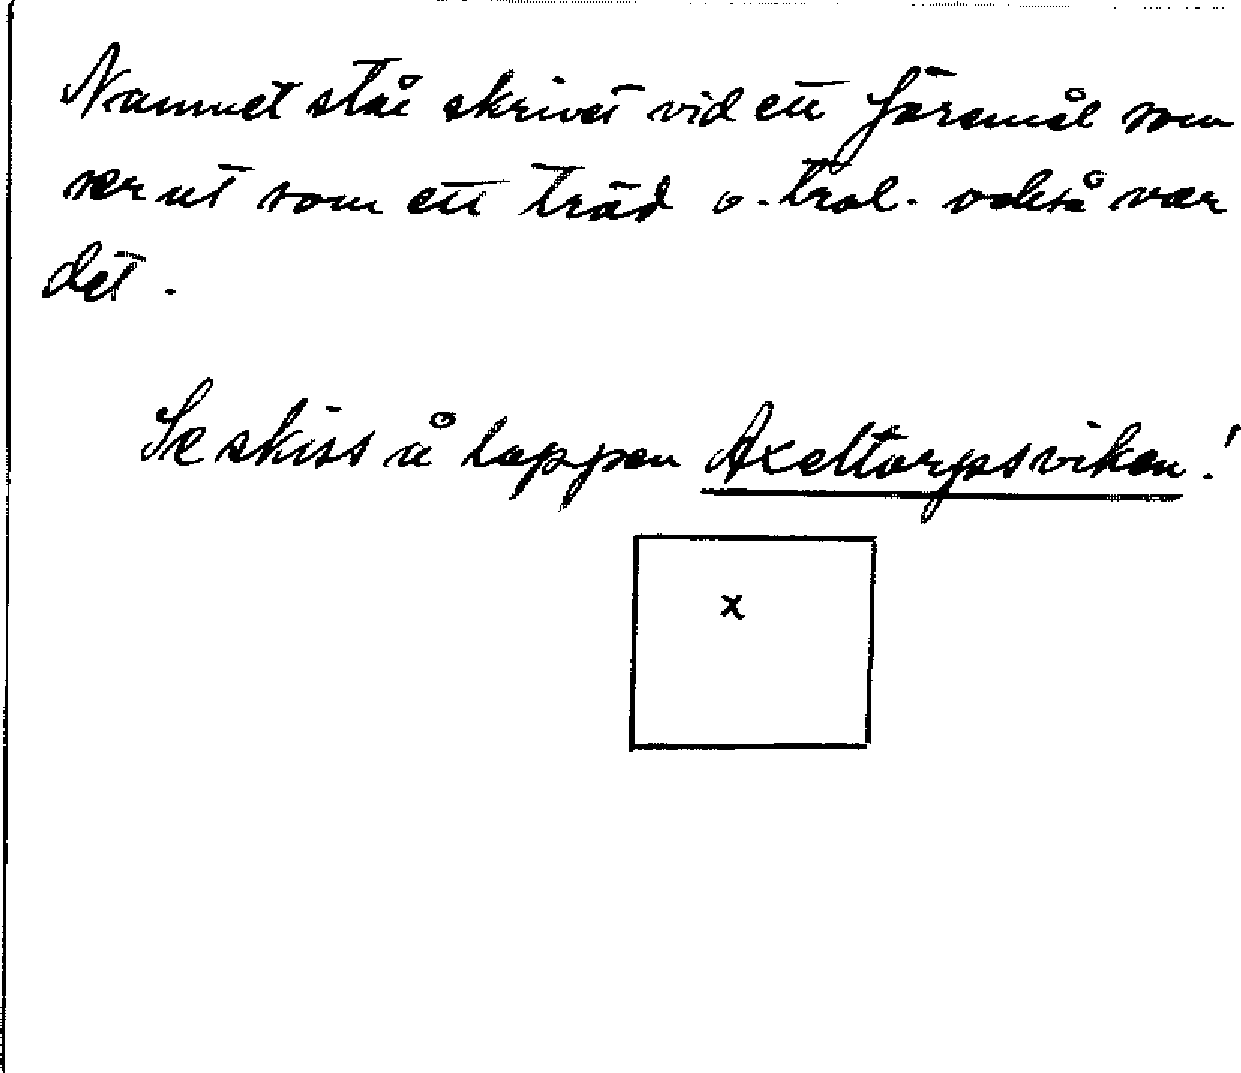 Namnet står skrivet vid ett föremål som
ser ut som ett träd o. trol. också var
det.
Se skiss å lappen Axeltorpsviken!
x